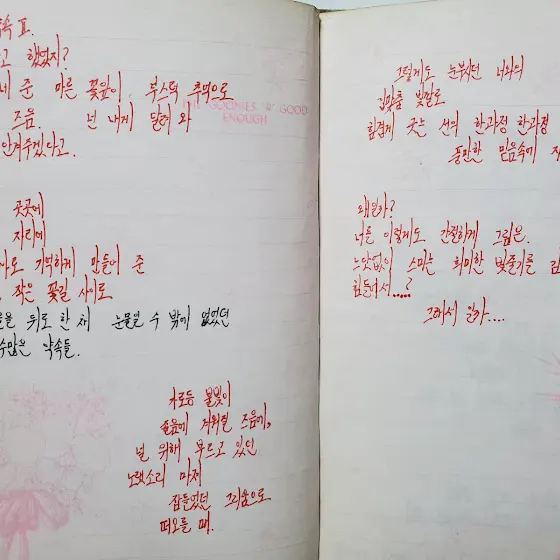 속 Ⅱ.
고 했었지?
네 준 마른 꽃잎이, 부스럭 추억으로
즈음. 넌 내게 달려와
안겨주겠다고.
THE GOONIES 'R' GOOD
ENOUGH
곳곳에
자리에
기억하게 만들어 준
작은 꽃길 사이로
뒤로 한 채 눈물일 수 밖에 없었던
수많은 약속들.
가로등 불빛이
설움에 겨워질 즈음에,
널 위해 부르고 있던
노랫소리 마저
잠들었던 그리움으로
떠오를 때.
그렇게도 눈부시던 너와의
빛깔로
힘겹게 긋는 선의 한과정 한과정
풍만한 믿음속에
왜일까?
너를 이렇게도 간절하게 그림은.
느낌없이 스미는 희미한 빛줄기를
힘들어서....?
그래서 일까....